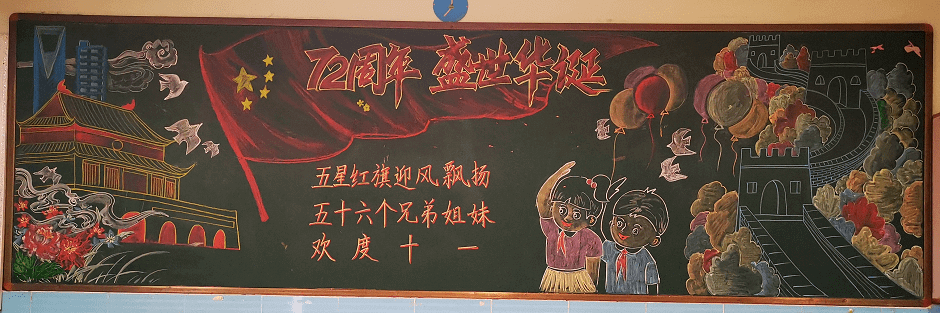 72周年 盛世华诞
五星红旗迎风飘扬
五十六个兄弟姐妹
欢度十一